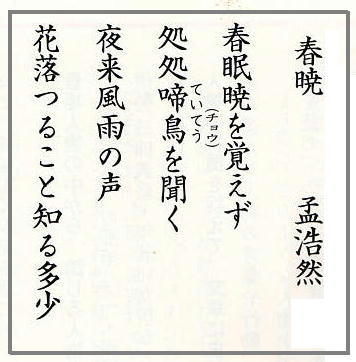 春暁　孟浩然
春眠暁を覚えず
処処啼鳥を聞く
ていてう
(チョウ)
夜来風雨の声
花落つること知る多少